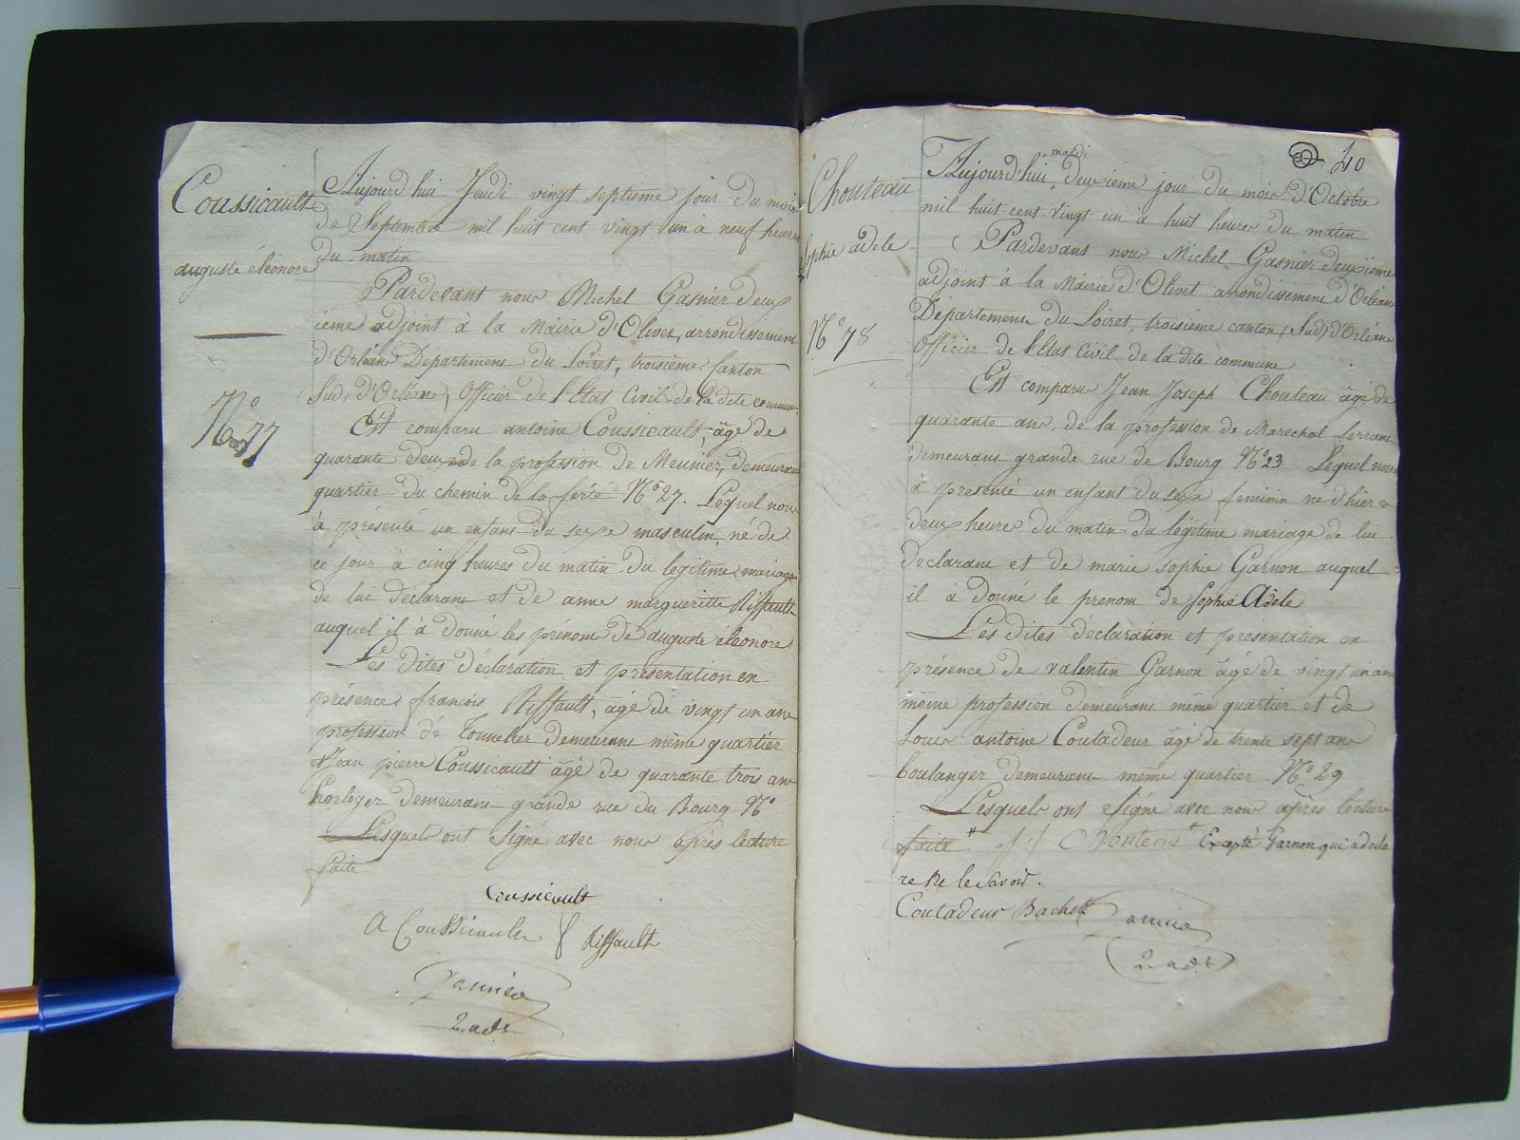 Coussicault
auguste éléonore
N.º 77
Aujourd'hui Jeudi vingt septieme jour du mois
de Septembre mil huit cent vingt un à neuf heures
du matin
Pardevant nous Michel Gasnier deux
ieme adjoint à la Mairie d'Olivet, arrondissement
d'Orléans Departement du Loiret, troisieme Canton
Sud, d'Orléans, Officier de l'Etat Civil de la dite commune
Est comparu antoine Coussicault, âgé de
quarante deux de la profession de Meunier, demeurant
quartier du chemin de la ferté N.º 27. Lequel nous
à présenté un enfant du sexe masculin, né de
ce jour à cinq heures du matin du legitime mariage
de lui declarant et de anne margueritte Riffault
auquel il à donné les prénoms de auguste éléonore
Les dites déclaration et présentation en
présence françois Riffault, âgé de vingt un ans
profession de Tonnelier demeurant même quartier
et Jean pierre Coussicault âgé de quarante trois ans
horloger demeurant grande rue du Bourg N.º
Lesquels ont Signé avec nous après lecture
faite
Coussicault
A Coussicault f Riffault
Gasnier
2 adt
40
Chouteau
Sophie adele
N.º 78
mardi
Aujourd'hui deuxieme jour du mois d'Octobre
mil huit cent vingt un à huit heures du matin
Pardevant nous Michel Gasnier deuxieme
adjoint à la Mairie d'Olivet arrondissement d'Orléans
Département du Loiret, troisieme canton (Sud) d'Orléans
Officier de l'Etat Civil de la dite commune
Est comparu Jean Joseph Chouteau âgé de
quarante ans, de la profession de Marechal ferrant
demeurant grande rue de Bourg N.º 23 Lequel nous
à presenté un enfant du sexe feminin né d'hier à
deux heures du matin du légitime mariage de lui
declarant et de marie sophie Garnon auquel
il à donné le prenom de Sophie Adele
Les dites declaration et presentation en
présence de valentin Garnon âgé de vingt un ans
même profession demeurant même quartier et de
Louis antoine Coutadeur âgé de trente sept ans
boulanger demeurant même quartier N.º 29
Lesquels ont Signé avec nous après lecture
faite Excepté Garnon qui a decla
re ne le Savoir.
Coutadeur Gasnier
2 adt